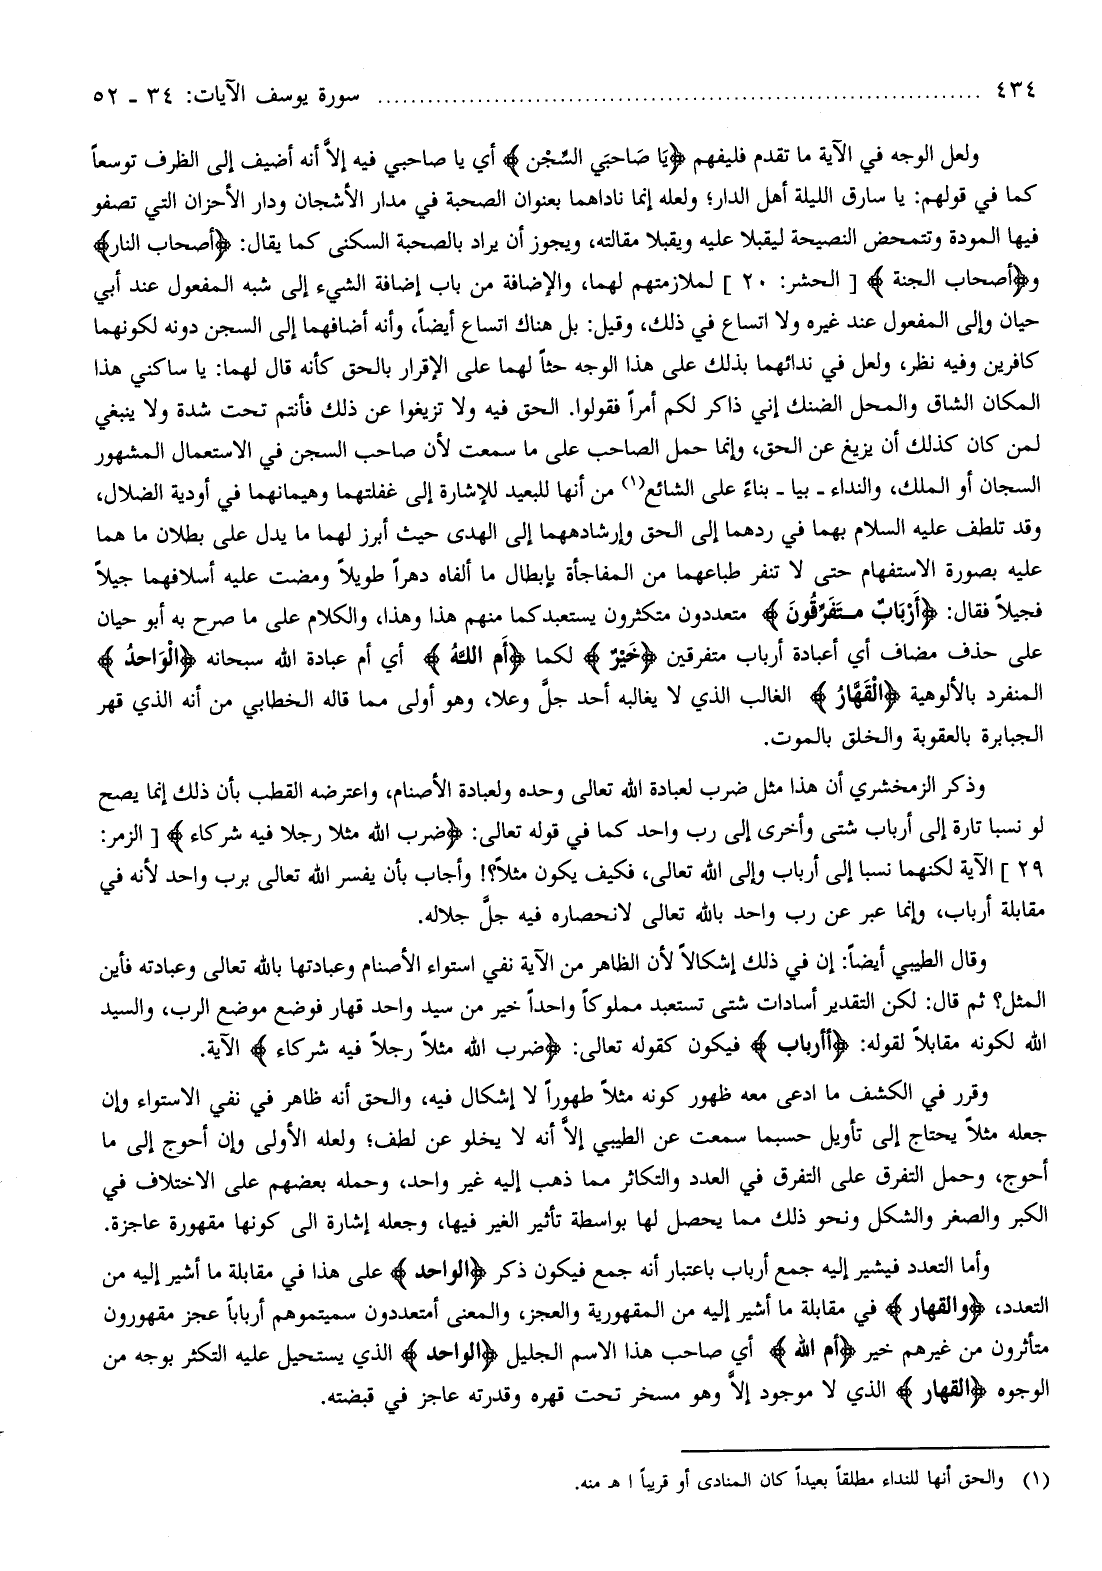 ٤٣٤ ........................................ سورة يوسف الآيات: ٣٤ ـ ٥٢
ولعل الوجه في الآية ما تقدم فليفهم ﴿يَا صَاحبَي السِّجْن﴾ أي يا صاحبي فيه إلاَّ أنه أضيف إلى الظرف توسعاً
كما في قولهم: يا سارق الليلة أهل الدار؛ ولعله إنما ناداهما بعنوان الصحبة في مدار الأشجان ودار الأحزان التي تصفو
فيها المودة وتتمحض النصيحة ليقبلا عليه ويقبلا مقالته، ويجوز أن يراد بالصحبة السكنى كما يقال: ﴿أصحاب النار﴾
و﴿أصحاب الجنة﴾ [ الحشر: ٢٠ ] لملازمتهم لهما، والإضافة من باب إضافة الشيء إلى شبه المفعول عند أبي
حيان وإلى المفعول عند غيره ولا اتساع في ذلك، وقيل: بل هناك اتساع أيضاً، وأنه أضافهما إلى السجن دونه لكونهما
كافرين وفيه نظر، ولعل في ندائهما بذلك على هذا الوجه حثاً لهما على الإقرار بالحق كأنه قال لهما: يا ساكني هذا
المكان الشاق والمحل الضنك إني ذاكر لكم أمراً فقولوا. الحق فيه ولا تزيغوا عن ذلك فأنتم تحت شدة ولا ينبغي
لمن كان كذلك أن يزيغ عن الحق، وإنما حمل الصاحب على ما سمعت لأن صاحب السجن في الاستعمال المشهور
السجان أو الملك، والنداء ـ بيا ـ بناءً على الشائع(١) من أنها للبعيد للإشارة إلى غفلتهما وهيمانهما في أودية الضلال،
وقد تلطف عليه السلام بهما في ردهما إلى الحق وإرشادههما إلى الهدى حيث أبرز لهما ما يدل على بطلان ما هما
عليه بصورة الاستفهام حتى لا تنفر طباعهما من المفاجأة بإبطال ما ألفاه دهراً طويلاً ومضت عليه أسلافهما جيلاً
فجيلاً فقال: ﴿أَرْبَابٌ متَفَرِّقُونَ﴾ متعددون متكثرون يستعبدكما منهم هذا وهذا، والكلام على ما صرح به أبو حيان
على حذف مضاف أي أعبادة أرباب متفرقين ﴿خَيْرٌ﴾ لكما ﴿أَم اللهُ﴾ أي أم عبادة الله سبحانه ﴿الْوَاحدُ﴾
المنفرد بالألوهية ﴿الْقَهَّارُ﴾ الغالب الذي لا يغالبه أحد جلَّ وعلا، وهو أولى مما قاله الخطابي من أنه الذي قهر
الجبابرة بالعقوبة والخلق بالموت.
وذكر الزمخشري أن هذا مثل ضرب لعبادة الله تعالى وحده ولعبادة الأصنام، واعترضه القطب بأن ذلك إنما يصح
لو نسبا تارة إلى أرباب شتى وأخرى إلى رب واحد كما في قوله تعالى: ﴿ضرب الله مثلا رجلا فيه شركاء﴾ [ الزمر:
٢٩ ] الآية لكنهما نسبا إلى أرباب وإلى الله تعالى، فكيف يكون مثلاً؟! وأجاب بأن يفسر الله تعالى برب واحد لأنه في
مقابلة أرباب، وإنما عبر عن رب واحد بالله تعالى لانحصاره فيه جلَّ جلاله.
وقال الطيبي أيضاً: إن في ذلك إشكالاً لأن الظاهر من الآية نفي استواء الأصنام وعبادتها بالله تعالى وعبادته فأين
المثل؟ ثم قال: لكن التقدير أسادات شتى تستعبد مملوكاً واحداً خير من سيد واحد قهار فوضع موضع الرب، والسيد
الله لكونه مقابلاً لقوله: ﴿أأرباب﴾ فيكون كقوله تعالى: ﴿ضرب الله مثلاً رجلاً فيه شركاء﴾ الآية.
وقرر في الكشف ما ادعى معه ظهور كونه مثلاً طهوراً لا إشكال فيه، والحق أنه ظاهر في نفي الاستواء وإن
جعله مثلاً يحتاج إلى تأويل حسبما سمعت عن الطيبي إلاَّ أنه لا يخلو عن لطف؛ ولعله الأولى وإن أحوج إلى ما
أحوج، وحمل التفرق على التفرق في العدد والتكاثر مما ذهب إليه غير واحد، وحمله بعضهم على الاختلاف في
الكبر والصغر والشكل ونحو ذلك مما يحصل لها بواسطة تأثير الغير فيها، وجعله إشارة الى كونها مقهورة عاجزة.
وأما التعدد فيشير إليه جمع أرباب باعتبار أنه جمع فيكون ذكر ﴿الواحد﴾ على هذا في مقابلة ما أشير إليه من
التعدد، ﴿والقهار﴾ في مقابلة ما أشير إليه من المقهورية والعجز، والمعنى أمتعددون سميتموهم أرباباً عجز مقهورون
متأثرون من غيرهم خير ﴿أم الله﴾ أي صاحب هذا الاسم الجليل ﴿الواحد﴾ الذي يستحيل عليه التكثر بوجه من
الوجوه ﴿القهار﴾ الذي لا موجود إلاَّ وهو مسخر تحت قهره وقدرته عاجز في قبضته.
(١) والحق أنها للنداء مطلقاً بعيداً كان المنادى أو قريباً ا هـ منه.